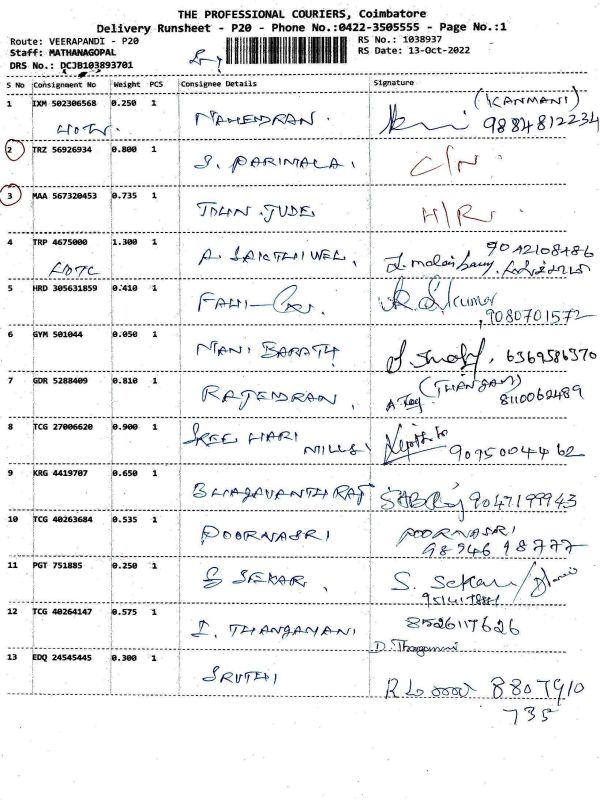 THE PROFESSIONAL COURIERS, Coimbatore
Delivery Runsheet - P20 - Phone No.:0422-3505555 - Page No.:1
Route: VEERAPANDI - P20 RS No.: 1038937
Staff: MATHANAGOPAL RS Date: 13-Oct-2022
DRS No.: DCJB103893701
S No Consignment No Weight PCS Consignee Details Signature
1 IXM 502306568 0.250 1 MAHENDRAN. (KANMANI)
9884812234
2 TRZ 56926934 0.800 1 S. PARIMALA. C/N
3 MAA 567320453 0.735 1 JOHN.JUDE, H/R
4 TRP 4675000 1.300 1 A. SAKTHIVEL. 9042108486
5 HRD 305631859 0.410 1 kumar
9080701572
6 GYM 501044 0.050 1 MANI BARATH, 6369586370
7 GDR 5288409 0.810 1 RAJENDRAN. (THANGAM)
8110062489
8 TCG 27006620 0.900 1 SREE HARI MILLS
9095004462
9 KRG 4419707 0.650 1 BHAGAVANTH RAJ 9047199943
10 TCG 40263684 0.535 1 POORNASRI POORNASRI
98946 98777
11 PGT 751885 0.250 1 S SEKAR. S. Sekar
12 TCG 40264147 0.575 1 I. THANGAMANI 8526117626
D. Thangamani
13 EDQ 24545445 0.300 1 SRUTHI 8807910
735